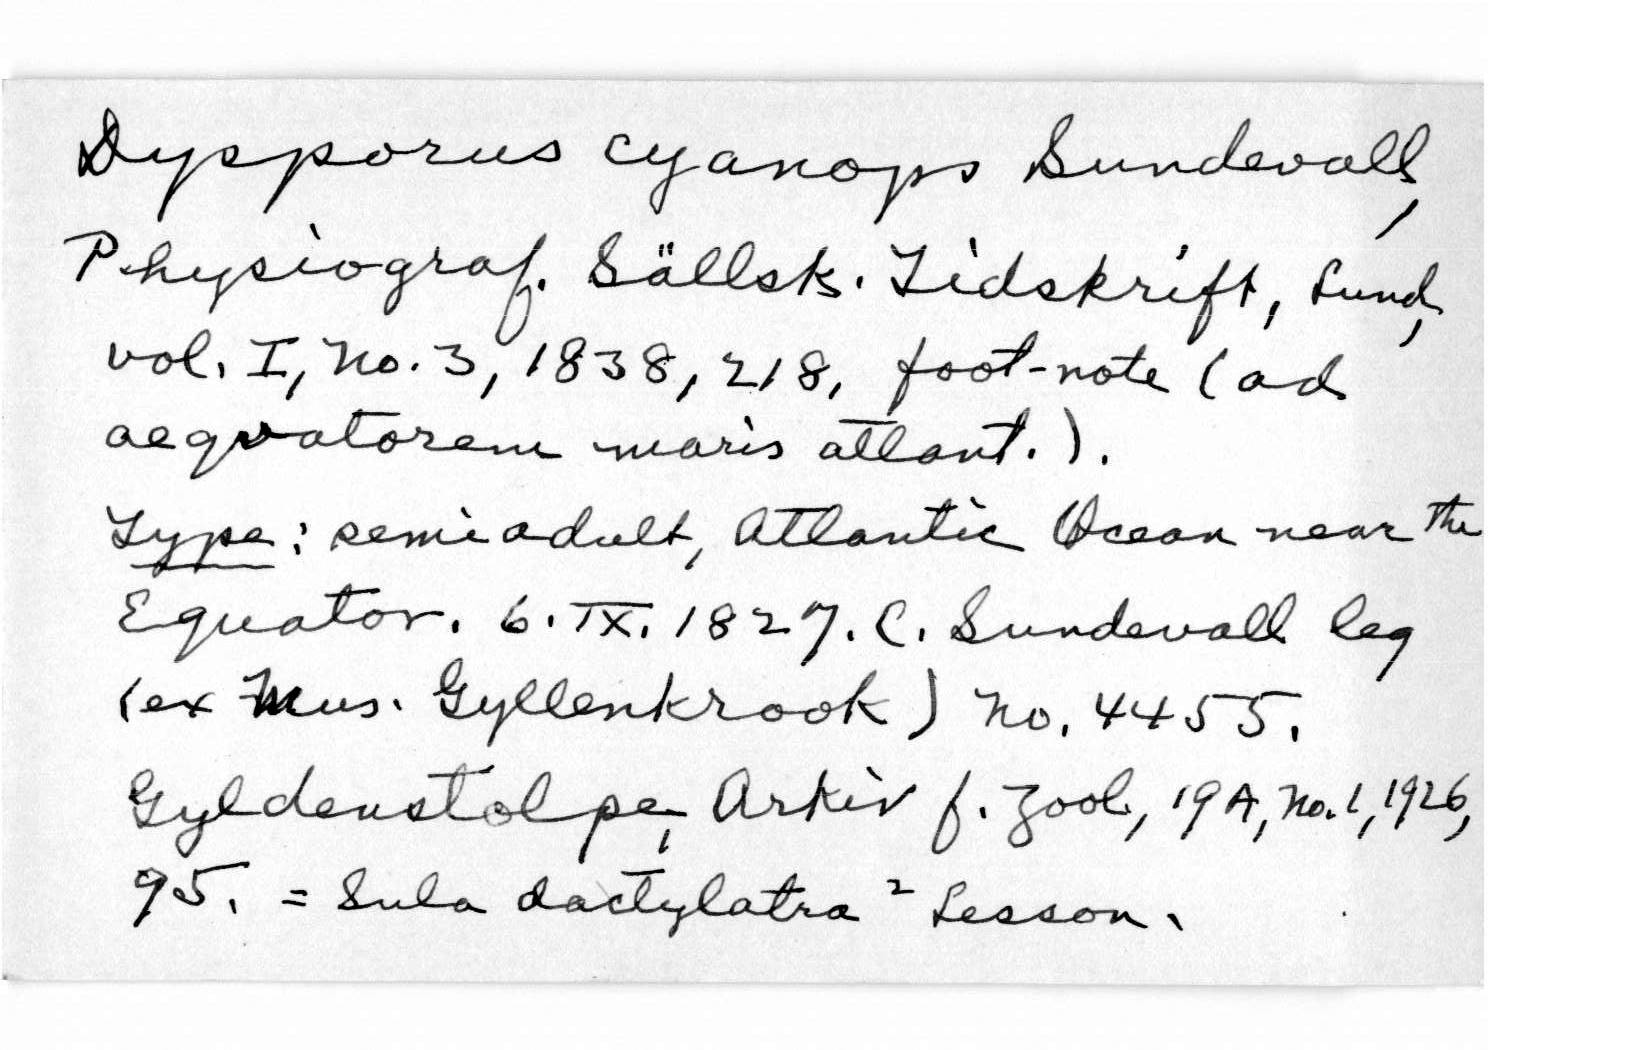 Dysporus cyanops Sundevall,
Physiograf. Sällsk. Tidskrift, Lund,
vol. I, No. 3, 1838, 218, foot-note (ad
aeqvatorem maris atlant.).
Type: semiadult, Atlantic Ocean near the
Equator. 6. IX. 1827. C. Sundevall leg
(ex Mus. Gyllenkrook) No. 4455.
Gyldenstolpe, Arkiv f. Zool, 19A, No. 1, 1926,
95. = Sula dactylatra ² Lesson.